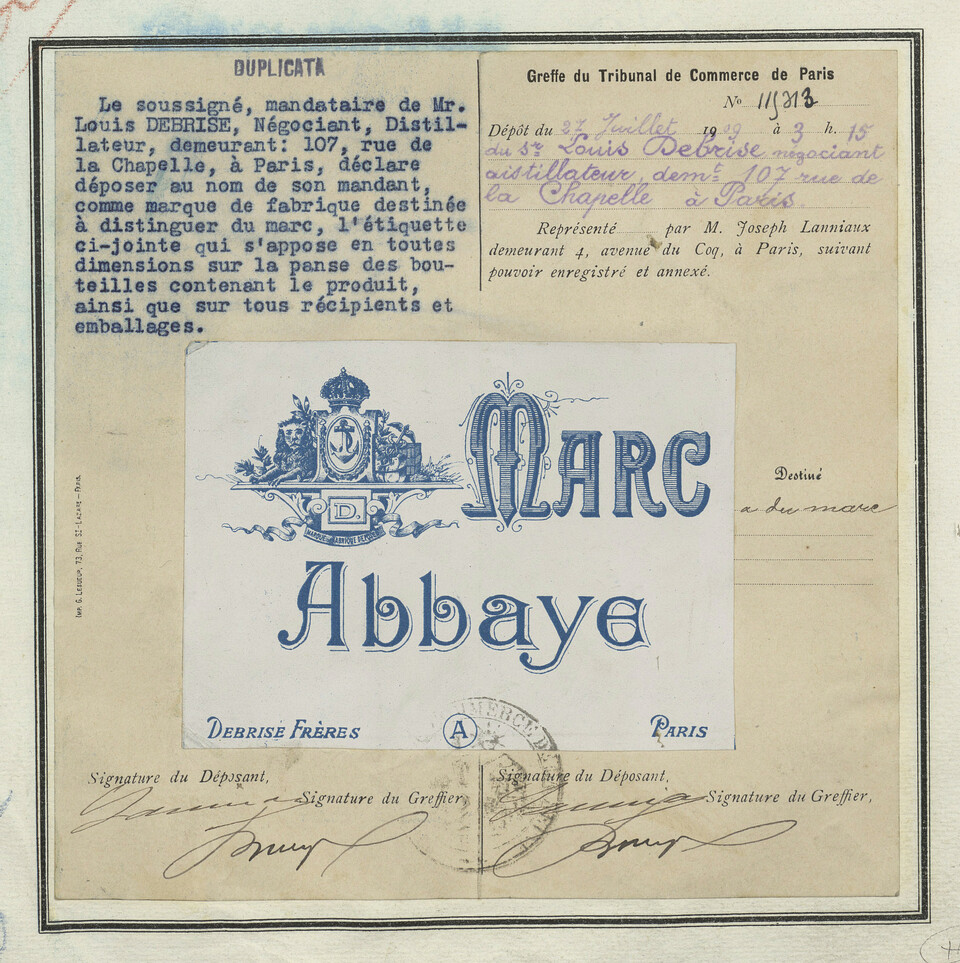 DUPLICATA
Le soussigné, mandataire de Mr.
Louis DEBRISE, Négociant, Distil-
lateur, demeurant: 107, rue de
la Chapelle, à Paris, déclare
déposer au nom de son mandant,
comme marque de fabrique destinée
à distinguer du marc, l'étiquette
ci-jointe qui s'appose en toutes
dimensions sur la panse des bou-
teilles contenant le produit,
ainsi que sur tous récipients et
emballages.
Greffe du Tribunal de Commerce de Paris
No 115313
Dépôt du 27 Juillet 1909 à 3 h. 15
du Sr Louis Debrise négociant
distillateur, demt 107 rue de
la Chapelle à Paris.
Représenté par M. Joseph Lanniaux
demeurant 4, avenue du Coq, à Paris, suivant
pouvoir enregistré et annexé.
MARC
D.
MARQUE DE FABRIQUE DÉPOSÉE
Abbaye
DEBRISE FRÈRES A PARIS
Destiné
a du marc
IMP. G. LESUEUR, 73, RUE ST-LAZARE — PARIS.
Signature du Déposant,
Signature du Greffier,
Signature du Déposant,
Signature du Greffier,